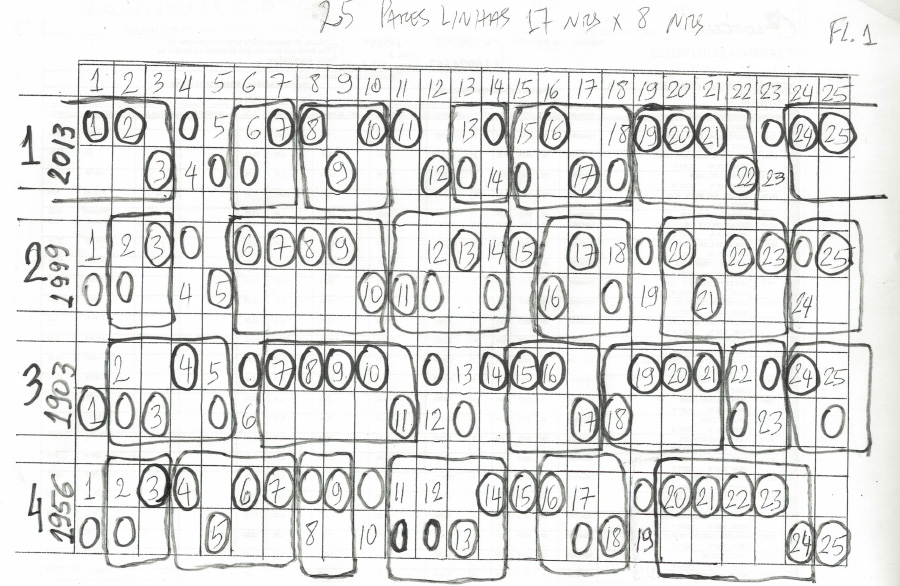 25 PARES LINHAS 17 NRS X 8 NRS
FL. 1
1 2 3 4 5 6 7 8 9 10 11 12 13 14 15 16 17 18 19 20 21 22 23 24 25
1 2013
1 2 0 5 6 7 8 10 11 13 0 15 16 18 19 20 21 0 24 25
3 4 0 0 9 12 0 14 0 17 0 22 23
2 1999
1 2 3 0 6 7 8 9 12 13 14 15 17 18 0 20 22 23 0 25
0 0 4 5 10 11 0 0 16 0 19 21 24
3 1903
2 4 5 0 7 8 9 10 0 13 14 15 16 19 20 21 22 0 24 25
1 0 3 0 6 11 12 0 17 18 0 23 0
4 1956
1 2 3 4 6 7 0 9 0 11 12 14 15 16 17 0 20 21 22 23
0 0 5 8 10 0 0 13 0 18 19 24 25